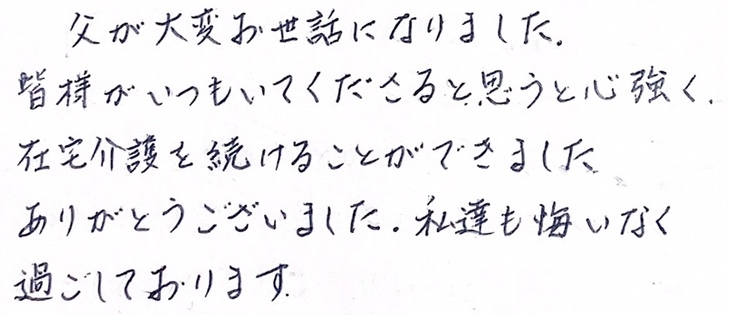 父が大変お世話になりました.
皆様がいつもいてくださると思うと心強く.
在宅介護を続けることができました
ありがとうございました.私達も悔いなく
過ごしております.